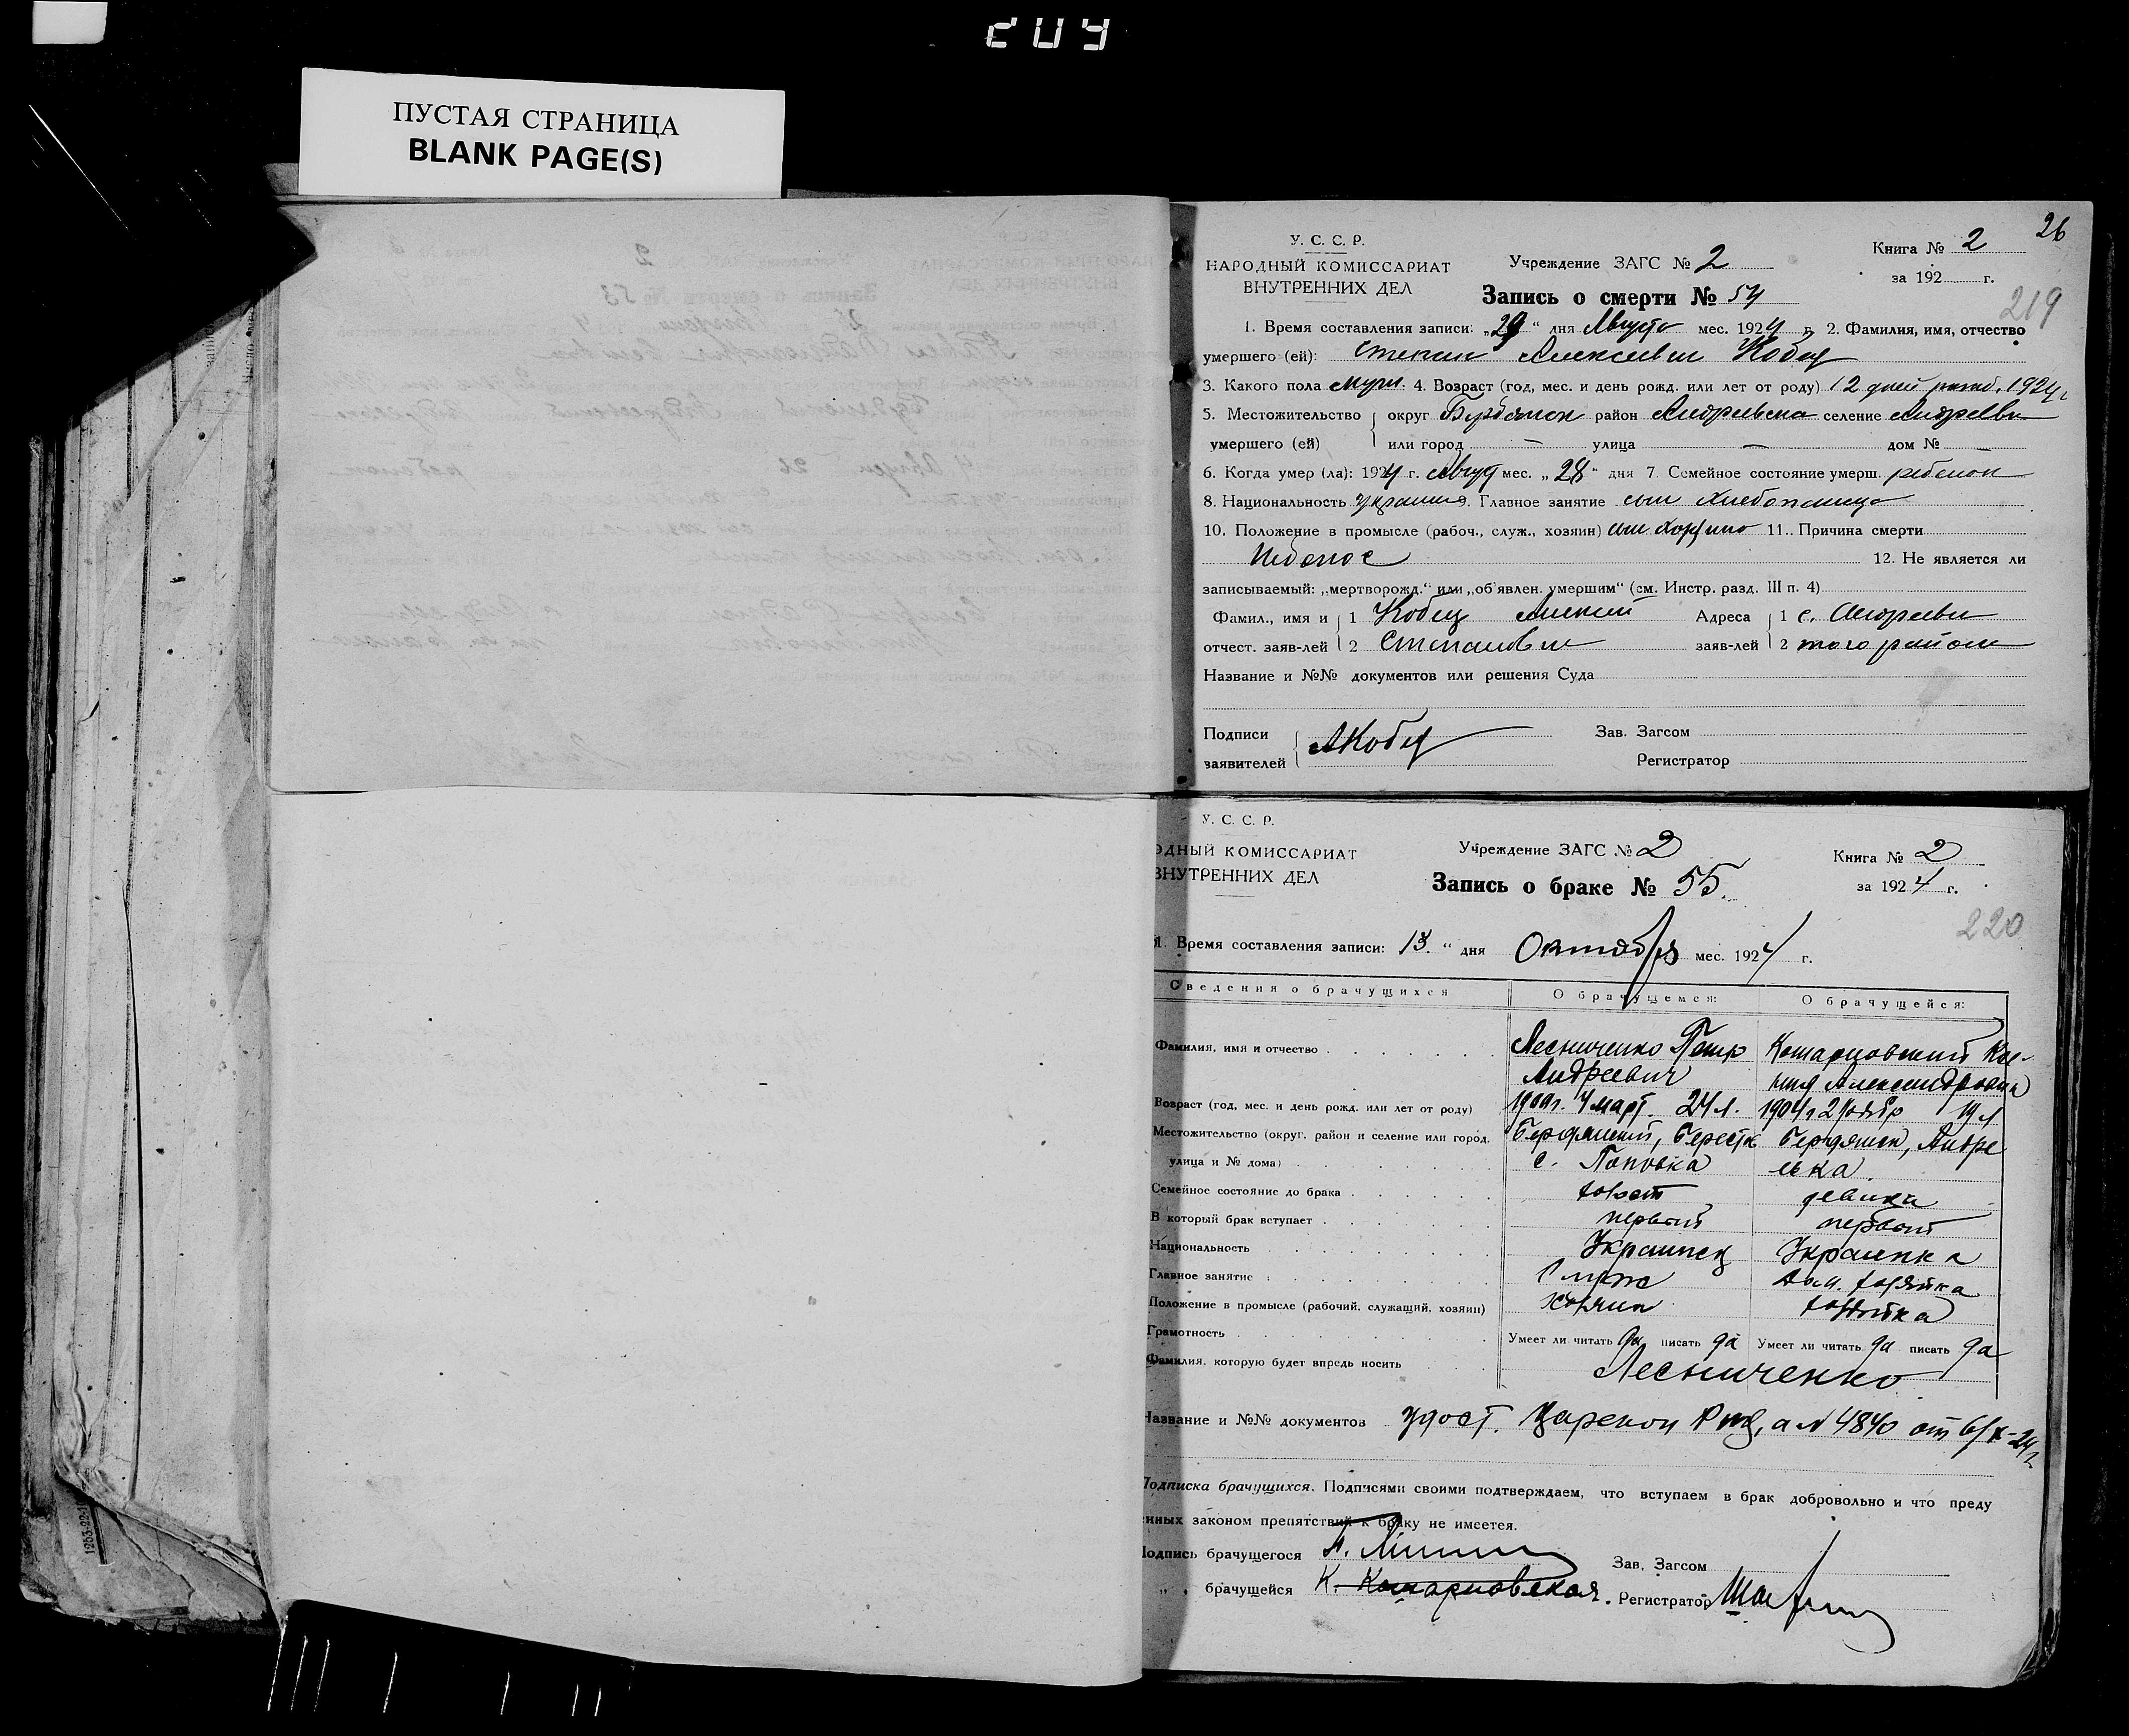 204
ПУСТАЯ СТРАНИЦА
BLANK PAGE(S)
26
У. С. С. Р.
НАРОДНЫЙ КОМИССАРИАТ
ВНУТРЕННИХ ДЕЛ
Учреждение ЗАГС № 2
Книга № 2
за 192 г.
Запись о смерти № 54
219
1. Время составления записи: „29“ дня Августа мес. 1924 г. 2. Фамилия, имя, отчество
умершего (ей): Степан Алексеевич Кобец
3. Какого пола муж. 4. Возраст (год, мес. и день рожд. или лет от роду) 12 дней 1924 г
5. Местожительство округ Бердянск район Андреевка селение Андреевка
умершего (ей) или город — улица — дом №
6. Когда умер (ла): 1924 г. Август мес. „28“ дня 7. Семейное состояние умерш. ребенок
8. Национальность украин 9. Главное занятие сын хлебопашца
10. Положение в промысле (рабоч., служ., хозяин) сын хозяина 11.. Причина смерти
12. Не является ли
записываемый: „мертворожд.“ или „об'явлен. умершим“ (см. Инстр. разд. III п. 4)
Фамил., имя и 1 Кобец Алексей Адреса 1 с. Андреевка
отчест. заяв-лей 2 Степанович заяв-лей 2 того района
Название и №№ документов или решения Суда
Подписи
заявителей
АКобец
Зав. Загсом
Регистратор
У. С. С. Р.
ОДНЫЙ КОМИССАРИАТ
ВНУТРЕННИХ ДЕЛ
Учреждение ЗАГС № 2
Книга № 2
за 1924 г.
Запись о браке № 55.
220
1. Время составления записи: 13. “ дня Октября мес. 1924 г.
Сведения о брачущихся О брачущемся: О брачущейся:
Фамилия, имя и отчество Лесниченко Петр Андреевич Комарновский Ксения Александровна
Возраст (год, мес. и день рожд. или лет от роду) 1900г. 4 март. 24 л. 1904 г 19 л
Местожительство (округ, район и селение или город, Бердянский, Бердянск, Андре
улица и № дома) с. Поповка евка
Семейное состояние до брака холост девица
В который брак вступает первый первый
Национальность Украинец Украинка
Главное занятие Служ Дом. хозяйка
Положение в промысле (рабочий, служащий, хозяин) хозяин хозяйка
Грамотность Умеет ли читать да писать да Умеет ли читать да писать да
Фамилия, которую будет впредь носить Лесниченко
Название и №№ документов удост. а № 4840 от 6/X-24 г
Подписка брачущихся. Подписями своими подтверждаем, что вступаем в брак добровольно и что преду
енных законом препятствий к браку не имеется.
Подпись брачущегося
Зав. Загсом
„ брачущейся К. Комарновская. Регистратор
1253-22-1